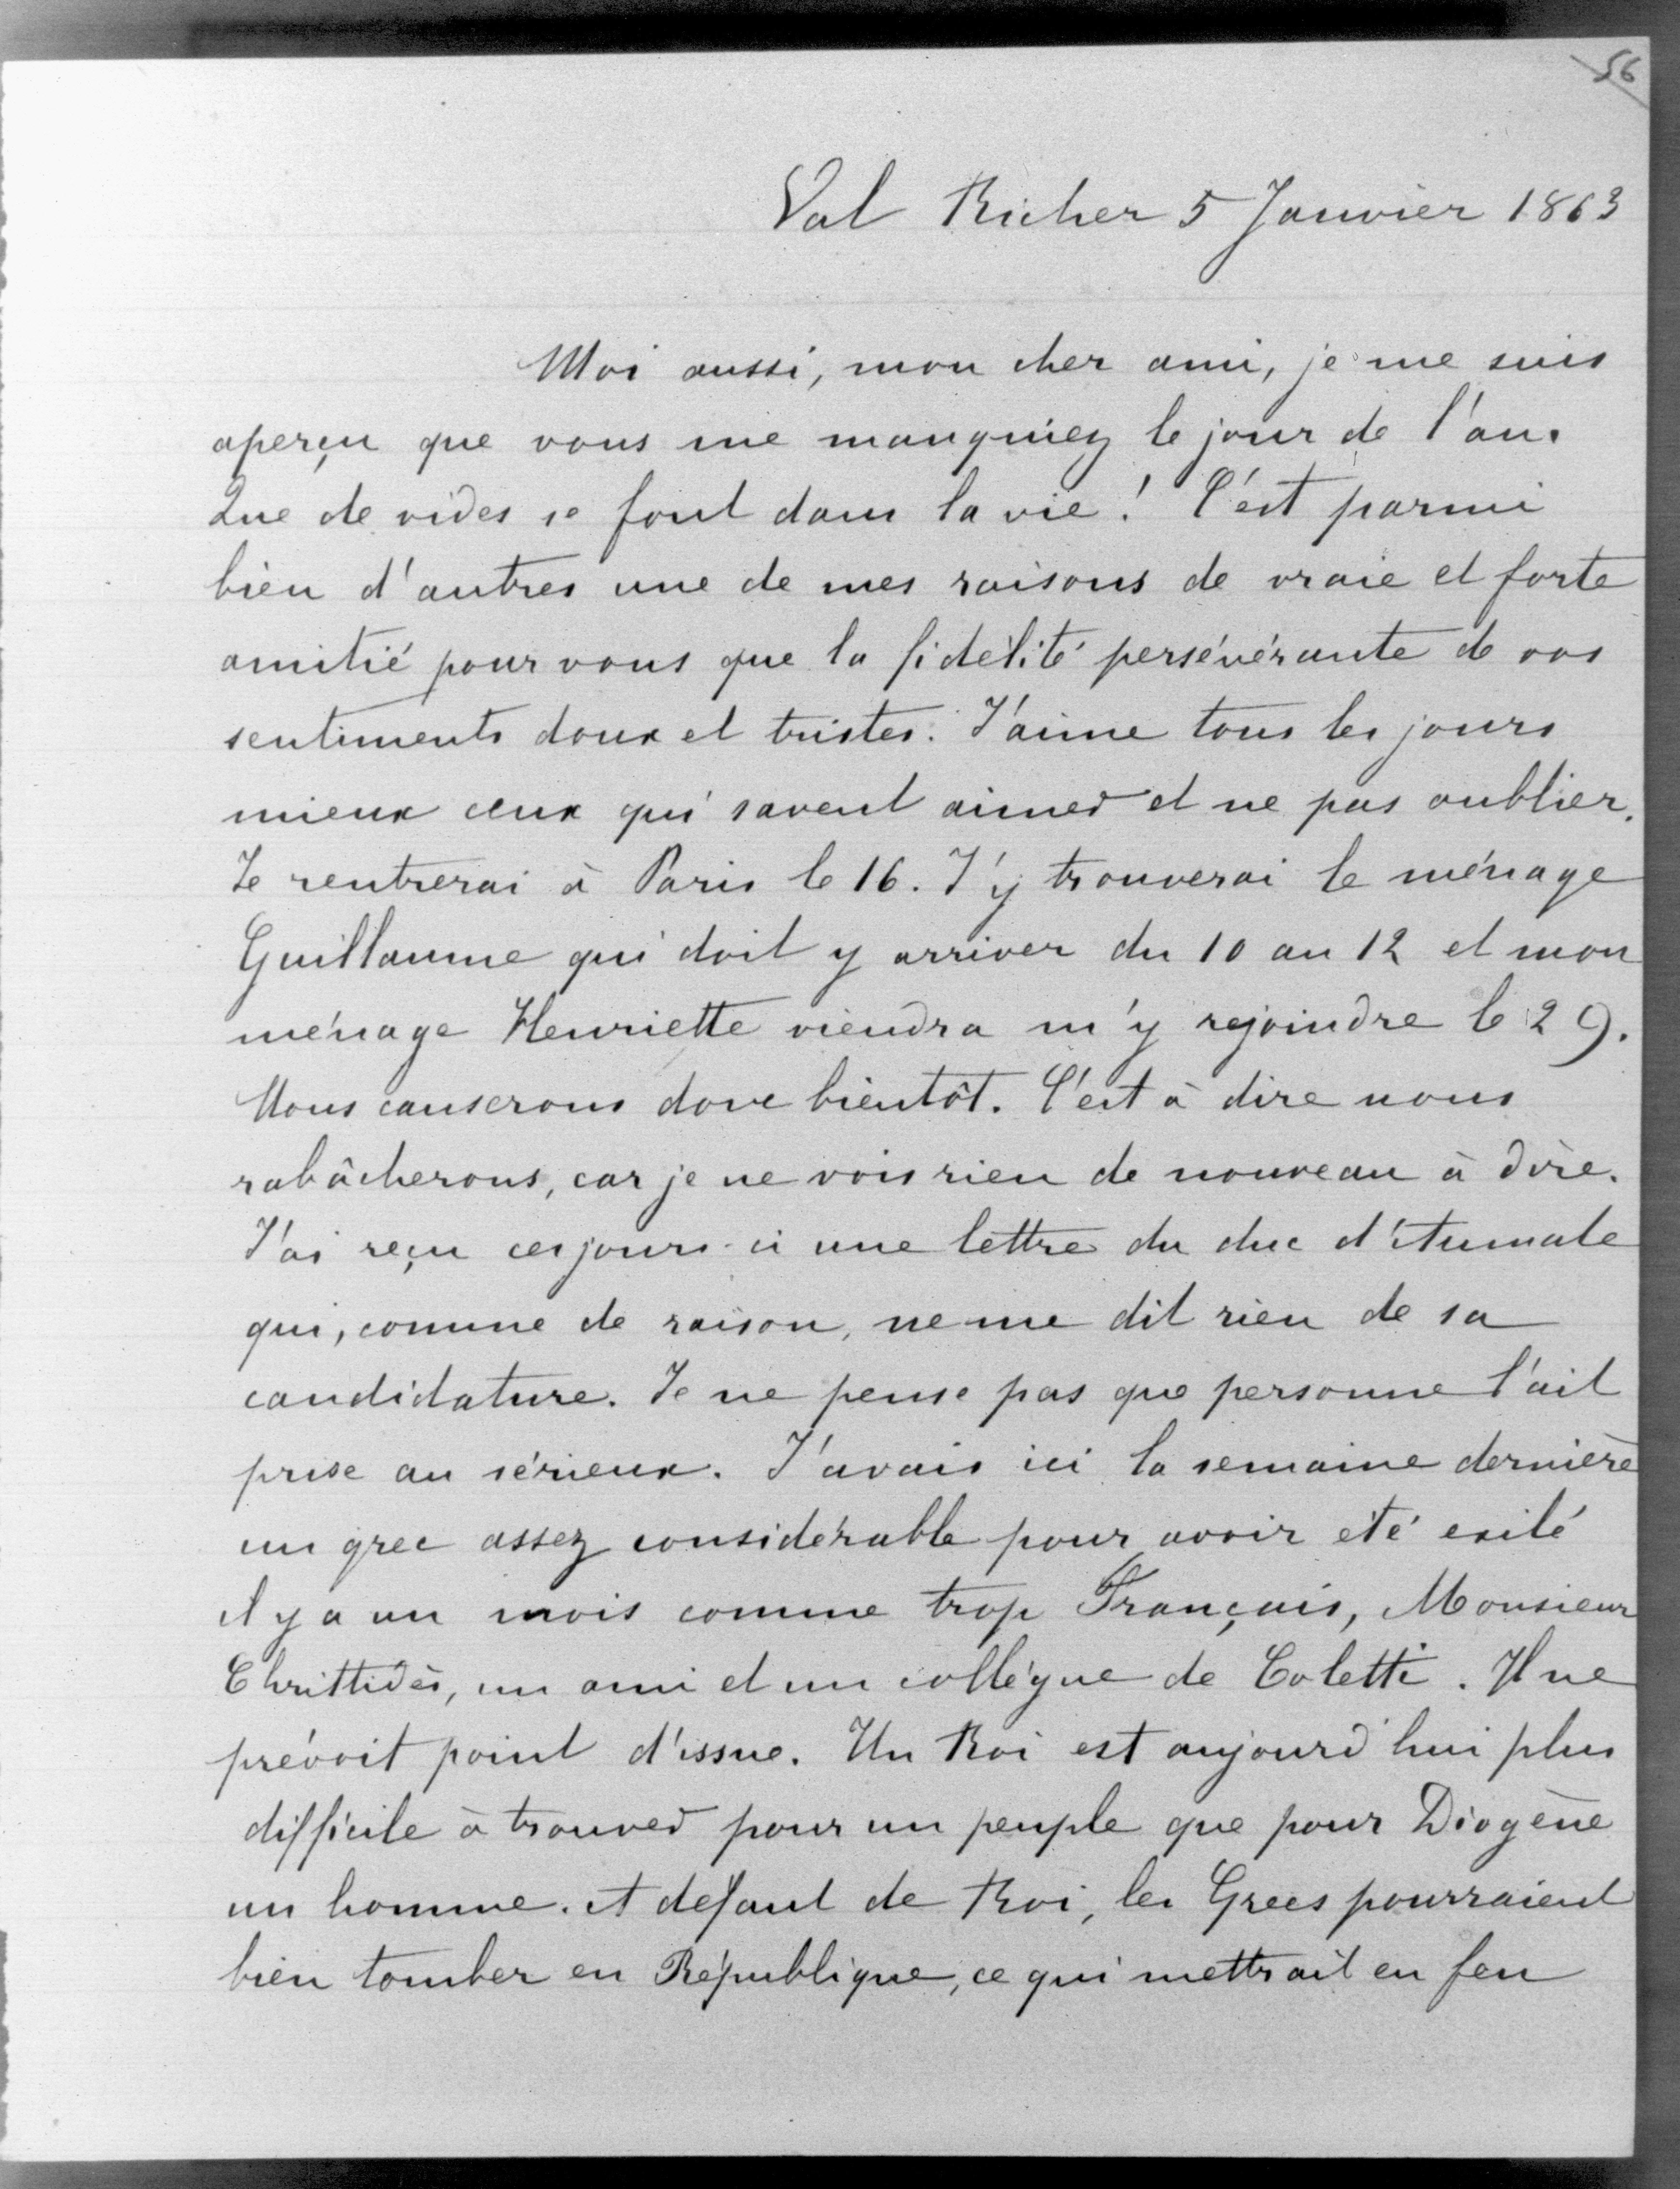 56
Val Richer 5 Janvier 1863
Moi aussi, mon cher ami, je me suis
aperçu que vous me manquiez le jour de l'an.
Que de vides se font dans la vie ! C'est parmi
bien d'autres une de mes raisons de vraie et forte
amitié pour vous que la fidélité persévérante de vos
sentiments doux et tristes. J'aime tous les jours
mieux ceux qui savent aimer et ne pas oublier.
Je rentrerai à Paris le 16. J'y trouverai le ménage
Guillaume qui doit y arriver du 10 au 12 et mon
ménage Henriette viendra m'y rejoindre le 29.
Nous causerons donc bientôt. C'est à dire nous
rabâcherons, car je ne vois rien de nouveau à dire.
J'ai reçu ces jours-ci une lettre du duc d'Aumale
qui, comme de raison, ne me dit rien de sa
candidature. Je ne pense pas que personne l'ait
prise au sérieux. J'avais ici la semaine dernière
un grec assez considérable pour avoir été exilé
il y a un mois comme trop Français, Monsieur
Christidès, un ami et un collègue de Coletti. Il ne
prévoit point d'issue. Un Roi est aujourd'hui plus
difficile à trouver pour un peuple que pour Diogène
un homme. A défaut de Roi, les Grecs pourraient
bien tomber en République, ce qui mettrait en feu